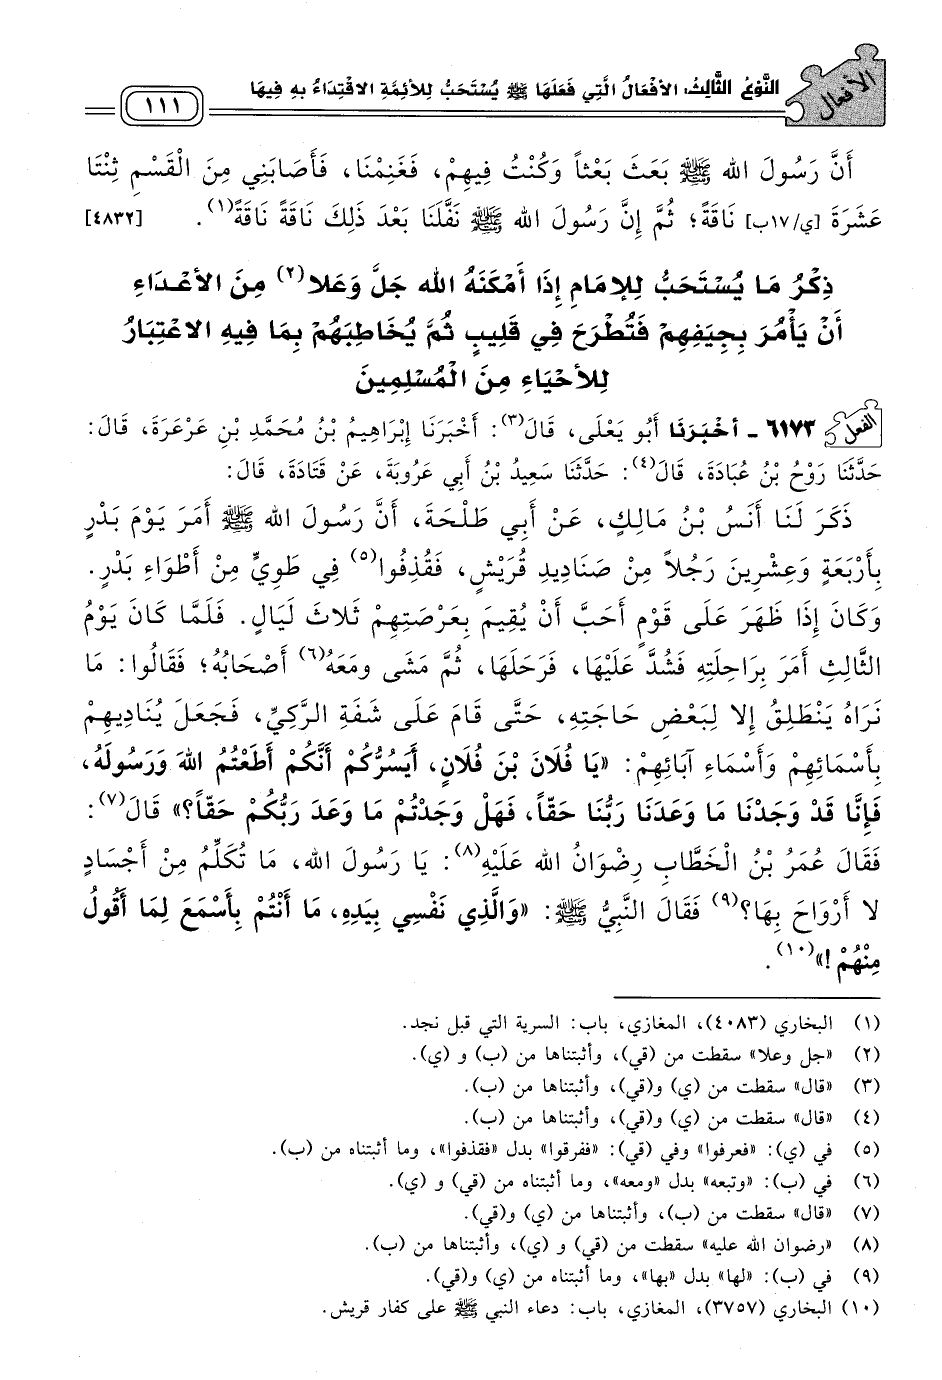 الأفعال
النَّوْعُ الثَّالِثُ: الأَفْعَالُ الَّتِي فَعَلَهَا ﷺ يُسْتَحَبُّ لِلأَئِمَّةِ الاقْتِدَاءُ بِهِ فِيهَا
١١١
أَنَّ رَسُولَ الله ﷺ بَعَثَ بَعْثاً وَكُنْتُ فِيهِمْ، فَغَنِمْنَا، فَأَصَابَنِي مِنَ الْقَسْمِ ثِنْتَا
عَشَرَةَ [ي/١٧ب] نَاقَةً؛ ثُمَّ إِنَّ رَسُولَ الله ﷺ نَفَّلَنَا بَعْدَ ذَلِكَ نَاقَةً نَاقَةً(١). [٤٨٣٢]
ذِكْرُ مَا يُسْتَحَبُّ لِلإمَامِ إِذَا أَمْكَنَهُ الله جَلَّ وَعَلا(٢) مِنَ الأَعْدَاءِ
أَنْ يَأْمُرَ بِجِيَفِهِمْ فَتُطْرَحَ فِي قَلِيبٍ ثُمَّ يُخَاطِبَهُمْ بِمَا فِيهِ الاعْتِبَارُ
لِلأَحْيَاءِ مِنَ الْمُسْلِمِينَ
الفعل ٦١٧٣ - أخْبَرَنَا أَبُو يَعْلَى، قَالَ(٣): أَخْبَرَنَا إِبْرَاهِيمُ بْنُ مُحَمَّدِ بْنِ عَرْعَرَةَ، قَالَ:
حَدَّثَنَا رَوْحُ بْنُ عُبَادَةَ، قَالَ(٤): حَدَّثَنَا سَعِيدُ بْنُ أَبِي عَرُوبَةَ، عَنْ قَتَادَةَ، قَالَ:
ذَكَرَ لَنَا أَنَسُ بْنُ مَالِكٍ، عَنْ أَبِي طَلْحَةَ، أَنَّ رَسُولَ الله ﷺ أَمَرَ يَوْمَ بَدْرٍ
بِأَرْبَعَةٍ وَعِشْرِينَ رَجُلاً مِنْ صَنَادِيدِ قُرَيْشٍ، فَقُذِفُوا(٥) فِي طَوِيٍّ مِنْ أَطْوَاءِ بَدْرٍ.
وَكَانَ إِذَا ظَهَرَ عَلَى قَوْمٍ أَحَبَّ أَنْ يُقِيمَ بِعَرْصَتِهِمْ ثَلاثَ لَيَالٍ. فَلَمَّا كَانَ يَوْمُ
الثَّالِثِ أَمَرَ بِرَاحِلَتِهِ فَشُدَّ عَلَيْهَا، فَرَحَلَهَا، ثُمَّ مَشَى وَمَعَهُ(٦) أَصْحَابُهُ؛ فَقَالُوا: مَا
نَرَاهُ يَنْطَلِقُ إِلا لِبَعْضِ حَاجَتِهِ، حَتَّى قَامَ عَلَى شَفَةِ الرَّكِيِّ، فَجَعَلَ يُنَادِيهِمْ
بِأَسْمَائِهِمْ وَأَسْمَاءِ آبَائِهِمْ: «يَا فُلَانَ بْنَ فُلَانٍ، أَيَسُرُّكُمْ أَنَّكُمْ أَطَعْتُمُ اللهَ وَرَسُولَهُ،
فَإِنَّا قَدْ وَجَدْنَا مَا وَعَدَنَا رَبُّنَا حَقّاً، فَهَلْ وَجَدْتُمْ مَا وَعَدَ رَبُّكُمْ حَقّاً؟» قَالَ(٧):
فَقَالَ عُمَرُ بْنُ الْخَطَّابِ رِضْوَانُ الله عَلَيْهِ(٨): يَا رَسُولَ الله، مَا تُكَلِّمُ مِنْ أَجْسَادٍ
لا أَرْوَاحَ بِهَا؟(٩) فَقَالَ النَّبِيُّ ﷺ: «وَالَّذِي نَفْسِي بِيَدِهِ، مَا أَنْتُمْ بِأَسْمَعَ لِمَا أَقُولُ
مِنْهُمْ!»(١٠).
(١) البخاري (٤٠٨٣)، المغازي، باب: السرية التي قبل نجد.
(٢) «جل وعلا» سقطت من (قي)، وأثبتناها من (ب) و (ي).
(٣) «قال» سقطت من (ي) و(قي)، وأثبتناها من (ب).
(٤) «قال» سقطت من (ي) و(قي)، وأثبتناها من (ب).
(٥) في (ي): «فعرفوا» وفي (قي): «ففرقوا» بدل «فقذفوا»، وما أثبتناه من (ب).
(٦) في (ب): «وتبعه» بدل «ومعه»، وما أثبتناه من (قي) و (ي).
(٧) «قال» سقطت من (ب)، وأثبتناها من (ي) و(قي).
(٨) «رضوان الله عليه» سقطت من (قي) و (ي)، وأثبتناها من (ب).
(٩) في (ب): «لها» بدل «بها»، وما أثبتناه من (ي) و(قي).
(١٠) البخاري (٣٧٥٧)، المغازي، باب: دعاء النبي ﷺ على كفار قريش.